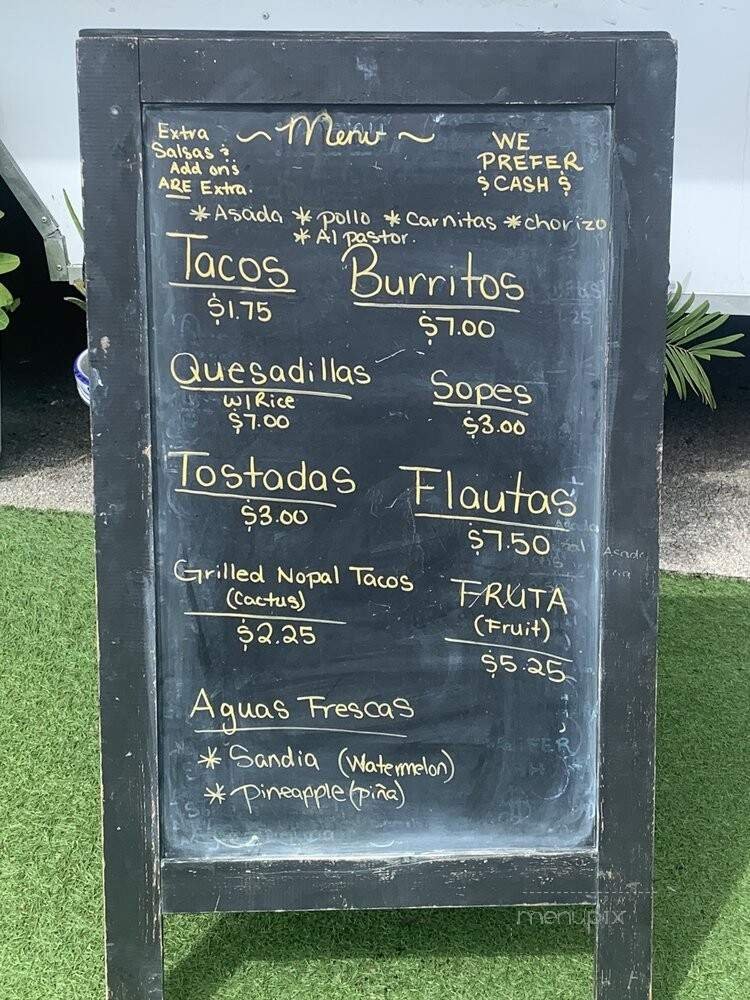 Extra
Salsas &
Add on's
ARE Extra.
~ Menu ~
WE
PREFER
$ CASH $
* Asada * pollo * Carnitas * chorizo
* Al pastor.
Tacos
$1.75
Burritos
$7.00
Quesadillas
w/Rice
$7.00
Sopes
$3.00
Tostadas
$3.00
Flautas
$7.50
Grilled Nopal Tacos
(Cactus)
$2.25
FRUTA
(Fruit)
$5.25
Aguas Frescas
* Sandia (Watermelon)
* Pineapple (piña)
menupix